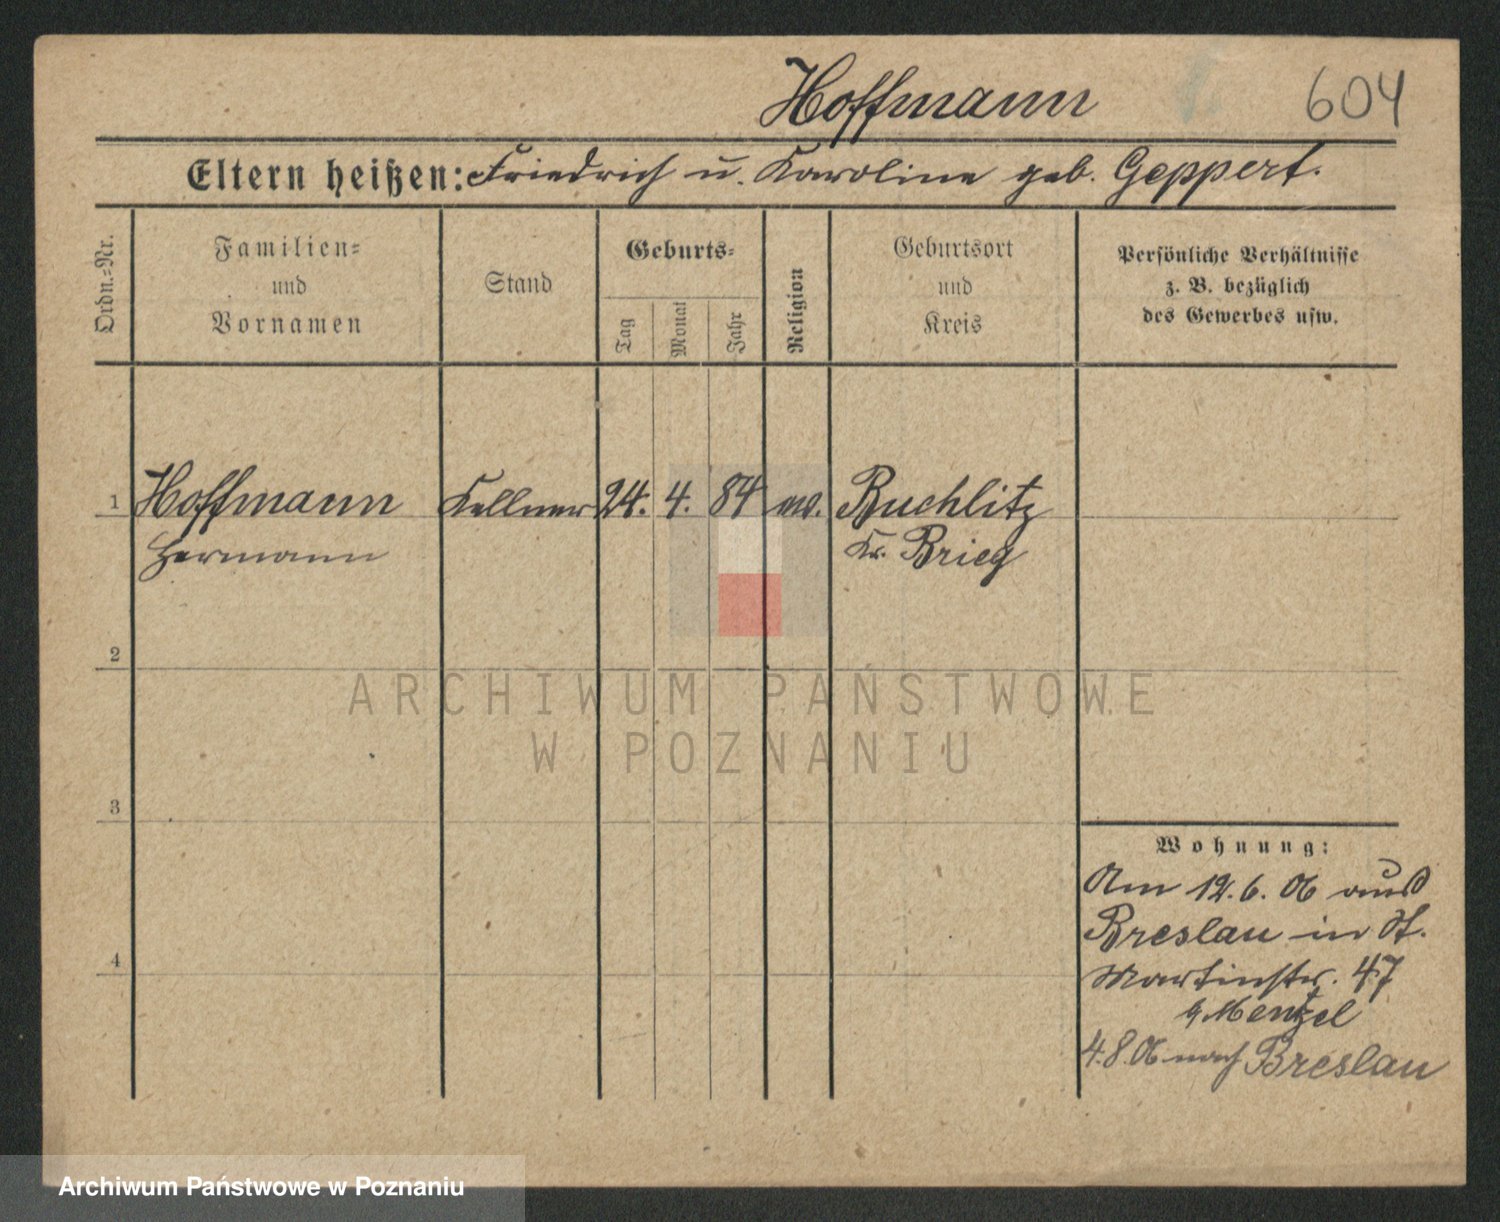 Hoffmann 604
Eltern heißen: Friedrich u. Karoline geb. Geppert.
Ordn.-Nr.
Familien-
und
Vornamen
Stand
Geburts-
Tag
Monat
Jahr
Religion
Geburtsort
und
Kreis
Persönliche Verhältnisse
z. B. bezüglich
des Gewerbes usw.
1 Hoffmann Kellner 24. 4. 84 ev. Buchlitz
Hermann Kr. Brieg
2
ARCHIWUM PAŃSTWOWE
W POZNANIU
3
Wohnung:
Am 12.6.06 aus
Breslau in St.
Martinstr. 47
b/Mentzel
4
4.8.06 nach Breslau
Archiwum Państwowe w Poznaniu